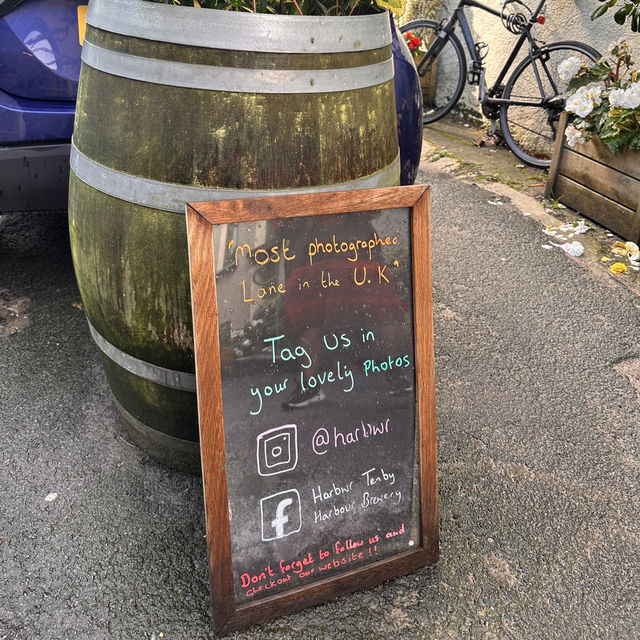 "Most photographed
Lane in the U.K"
Tag us in
your lovely Photos
@harbwr
Harbwr Tenby
Harbour Brewery
Don't forget to follow us and
checkout our website!!